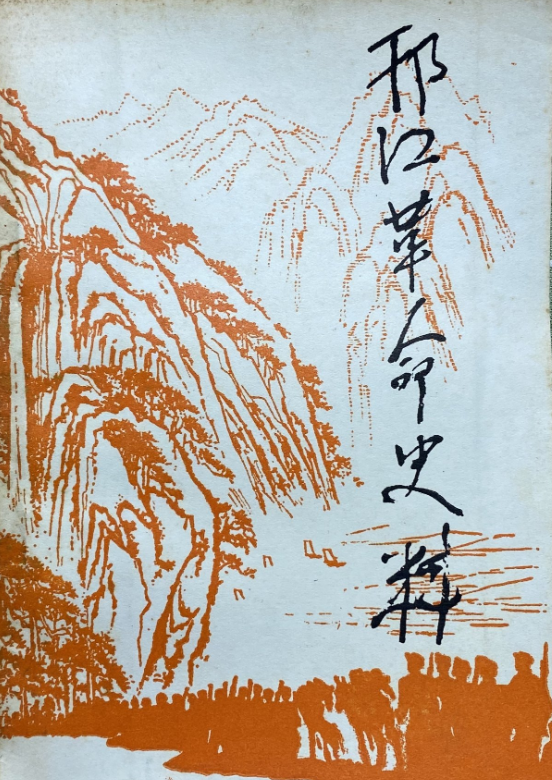 邗江革命史料